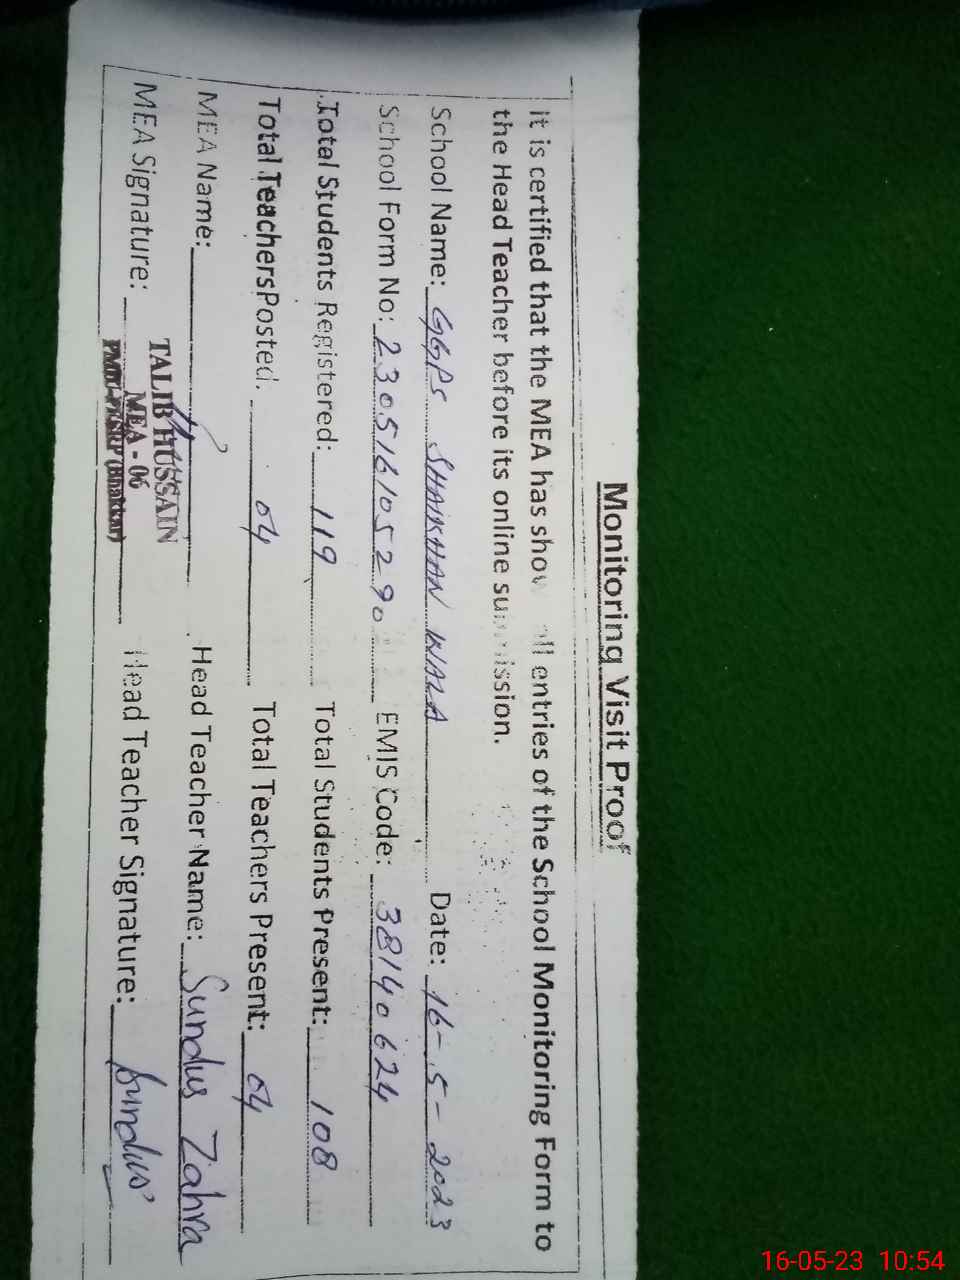 Monitoring Visit Proof
it is certified that the MEA has show all entries of the School Monitoring Form to
the Head Teacher before its online submission.
School Name: GGPS SHAIKHAN WALA Date: 16-5-2023
School Form No: 230516105290 EMIS Code: 38140624
Total Students Registered: 119 Total Students Present: 108
Total Teachers Posted: 04 Total Teachers Present: 04
MEA Name: Head Teacher Name: Sundus Zahra
TALIB HUSSAIN
MEA Signature: MEA - 06 Head Teacher Signature: Sundus
(Bhakkar)
16-05-23 10:54